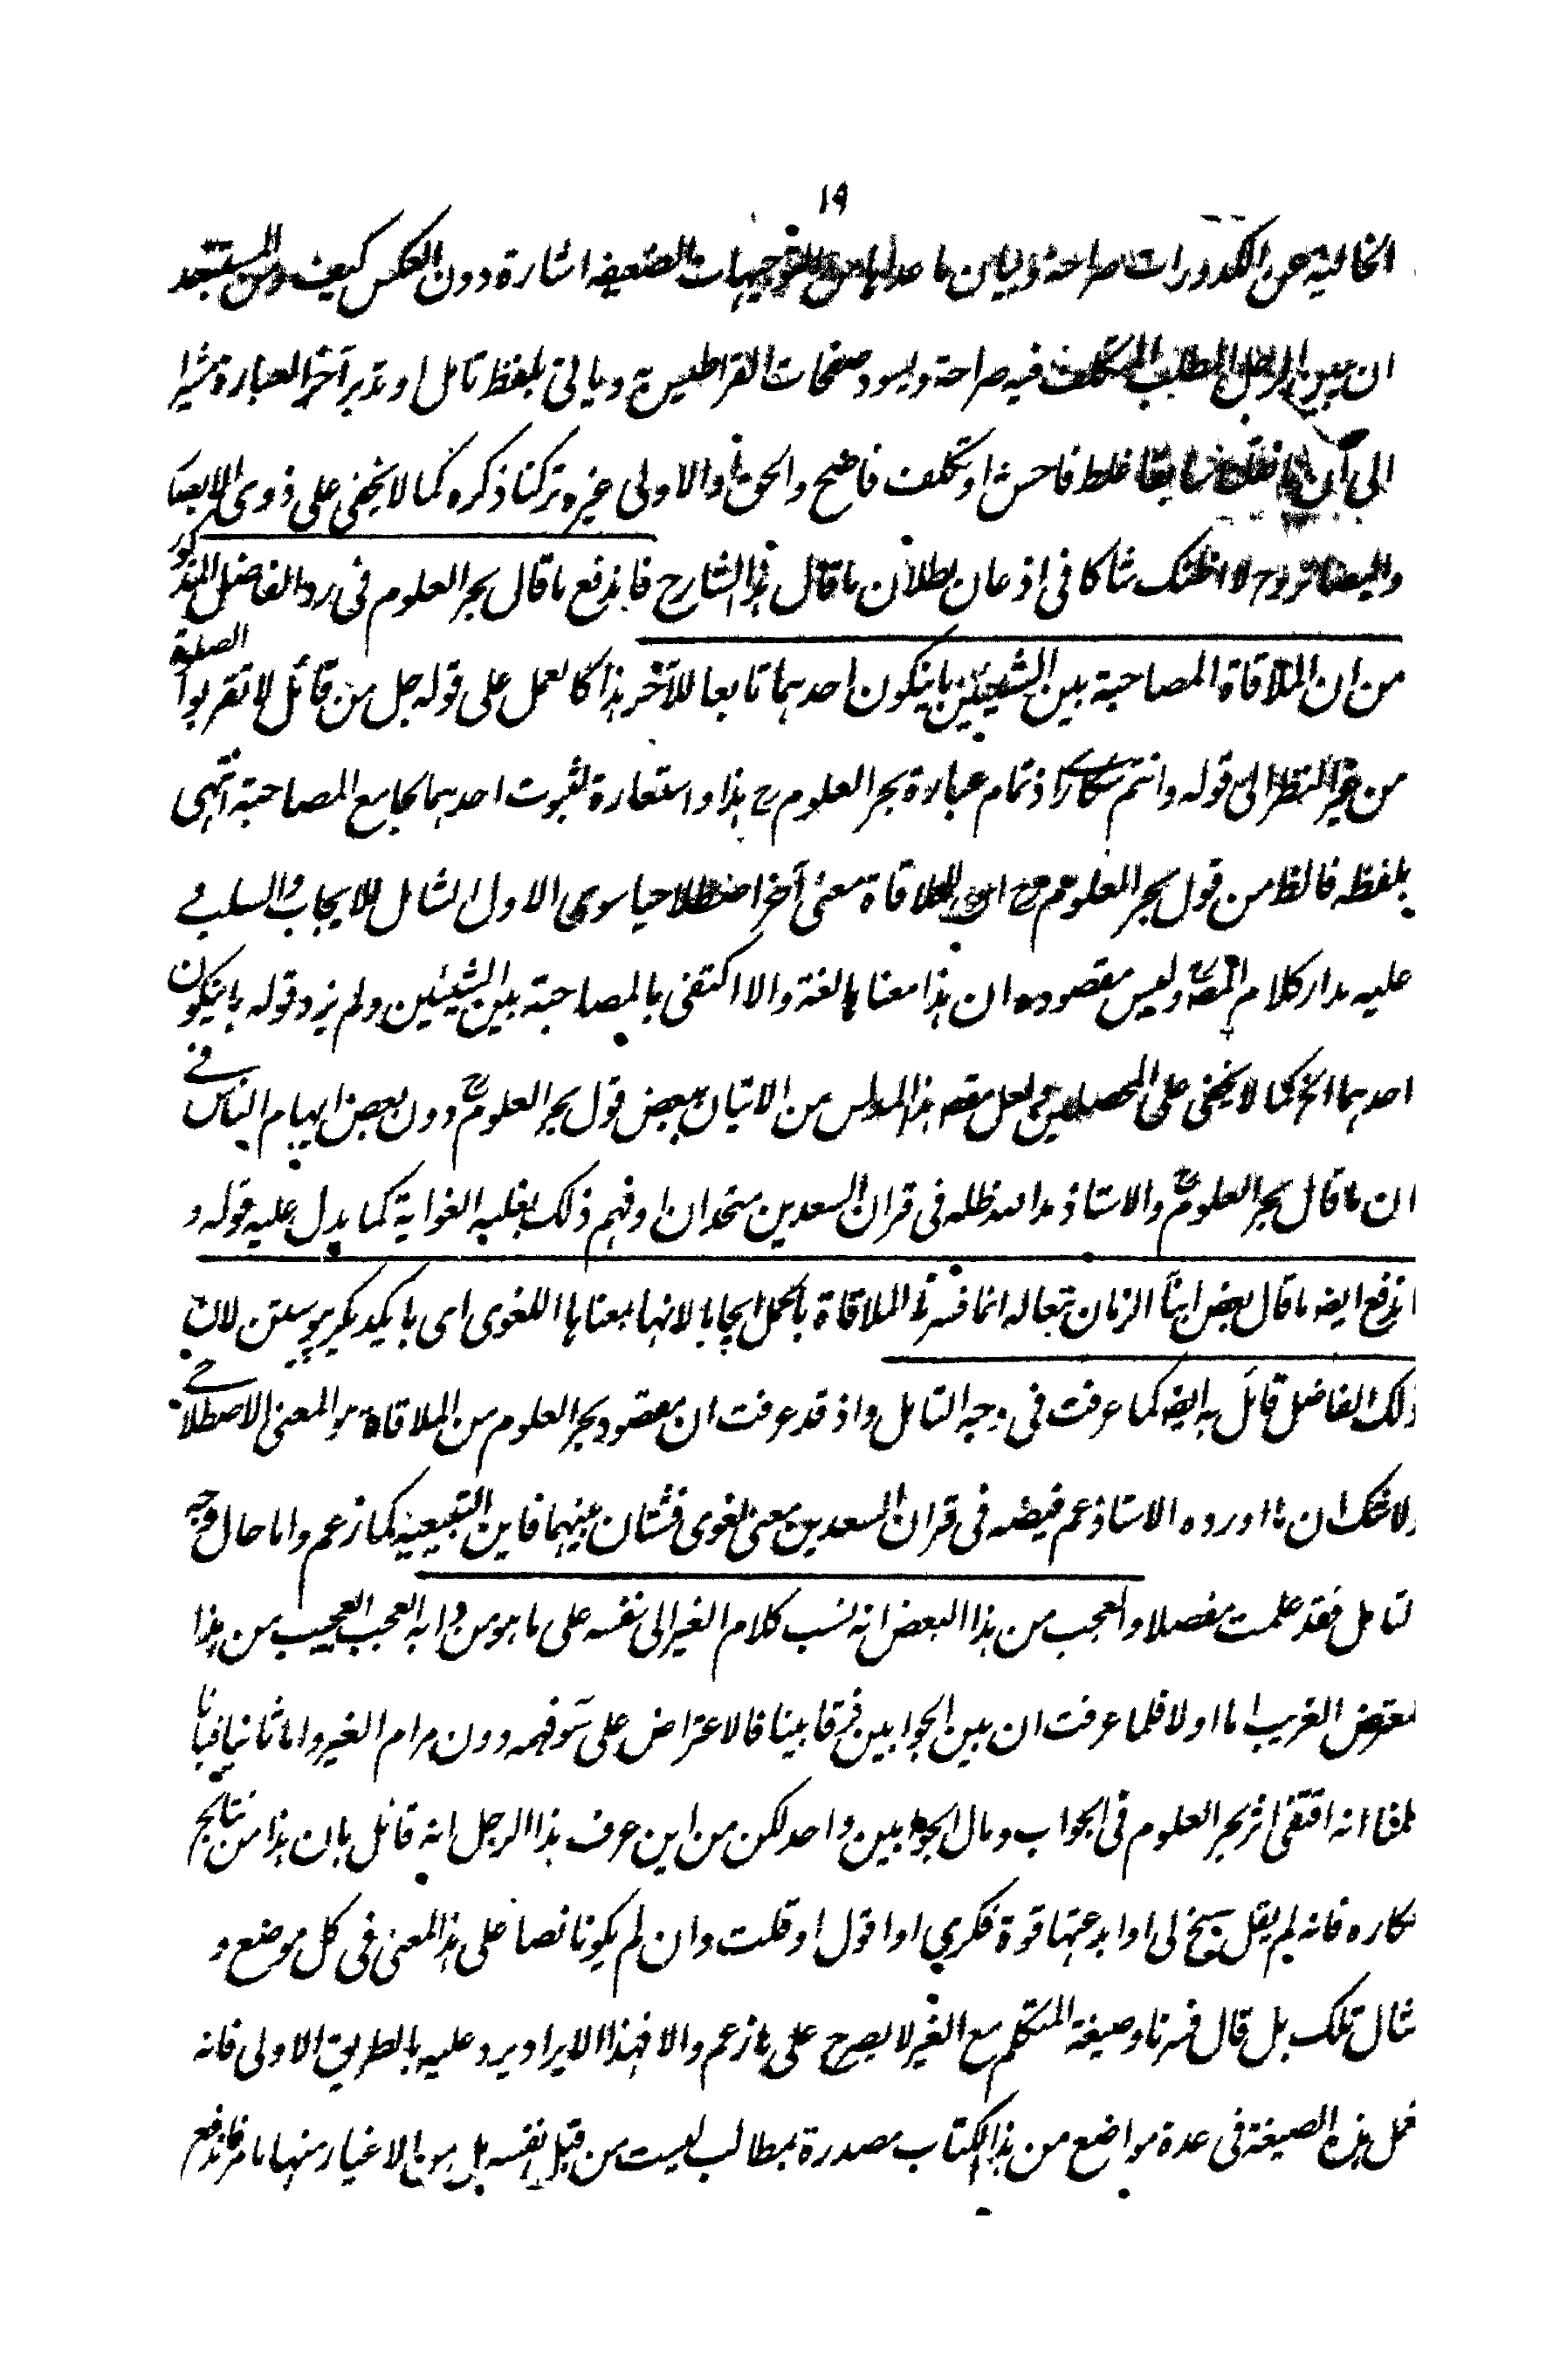 ١٩
الخالية عن الكدورات صراحة وليبين ما عداها من التوجيهات الضعيفة اشارة دون العكس كيف ومن المستبعد
ان يبين الرجل المطلب المتكلف فيه صراحة ويسود صفحات القراطيس به وياتى بلفظ تامل او تدبر آخر العبارة مشيرا
الى ان ما نقلت سابقا غلط فاحش او تكلف فاضح والحق او الاولى غيره وتركنا ذكره كما لا يخفى على ذوى الابصار
لا اظنك شاكا فى اذعان بطلان ما قال هذا الشارح فاندفع ما قال بحر العلوم فى رد الفاضل المذكور
من ان الملاقاة المصاحبة بين الشيئين بان يكون احدهما تابعا للآخر هذا كالعمل على قوله جل من قائل لا تقربوا الصلوة
من غير النظر الى قوله وانتم سكارى اذ تمام عبارة بحر العلوم رح هذا واستعارة لثبوت احدهما بجامع المصاحبة انتهى
بلفظه فالظ من قول بحر العلوم رح ان للملاقاة معنى آخر اصطلاحيا سوى الاول الشامل للايجاب والسلب و
عليه مدار كلام المص وليس مقصوده ان هذا معناها لغة والا اكتفى بالمصاحبة بين الشيئين ولم يزد قوله بان يكون
احدهما الخ كما لا يخفى على المحصلين ولعل مقصد هذا المدلس من الاتيان ببعض قول بحر العلوم رح دون بعض ايهام الناس فى
ان ما قال بحر العلوم رح والاستاذ مد الله ظله فى قران السعدين متحدان او فهم ذلك لغلبه الغواية كما يدل عليه قوله و
اندفع ايضه ما قال بعض ابناء الزمان تبعا له انما فسرنا الملاقاة بالحمل ايجابا لانها بمعناها اللغوى اى با يكديگر پيوستن لان
ذلك الفاضل قائل به ايضه كما عرفت فى وجه التامل واذ قد عرفت ان مقصود بحر العلوم من الملاقاة هو المعنى الاصطلاحى
ولا شك ان ما اورده الاستاذ عم فيضه فى قران السعدين معنى لغوى فشتان بينهما فاين التبعية كما زعم واما حال وجه
لتامل فقد علمت مفصلا والعجب من هذا البعض انه نسب كلام الغير الى نفسه على ما هو من دابه العجب العجيب من هذا
لمعترض الغريب اما اولا فلما عرفت ان بين الجوابين فرقا بينا فالاعتراض على سوء فهمه دون مرام الغير واما ثانيا فبانا
سلمنا انه اقتفى اثر بحر العلوم فى الجواب ومال الجوابين واحد لكن من اين عرف هذا الرجل انه قائل بان هذا من نتائج
فكاره فانه لم يقل سنخ لى او ابدعتها قوة فكرى او اقول او قلت وان لم يكونا نصا على هذا المعنى فى كل موضع و
مثال تلك بل قال فسرنا وصيغة المتكلم مع الغير لا يصرح على ما زعم والا فهذا الايراد يرد عليه بالطريق الاولى فانه
ستعمل هذه الصيغة فى عدة مواضع من هذا الكتاب مصدرة بمطالب ليست من قبل نفسه بل من الاغيار منها ما مر فاندفع